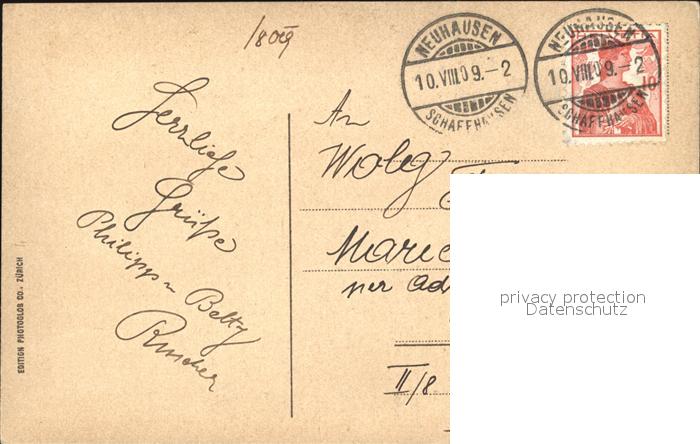 18 09
NEUHAUSEN
10.VIII.09.-2
SCHAFFHAUSEN
NEUHAUSEN
10.VIII.09.-2
SCHAFFHAUSEN
HELVETIA
10
Herzliche
Grüße
Philipp u Betty
An
Marie
per Ad
II/8
privacy protection
Datenschutz
EDITION PHOTOGLOB CO., ZÜRICH